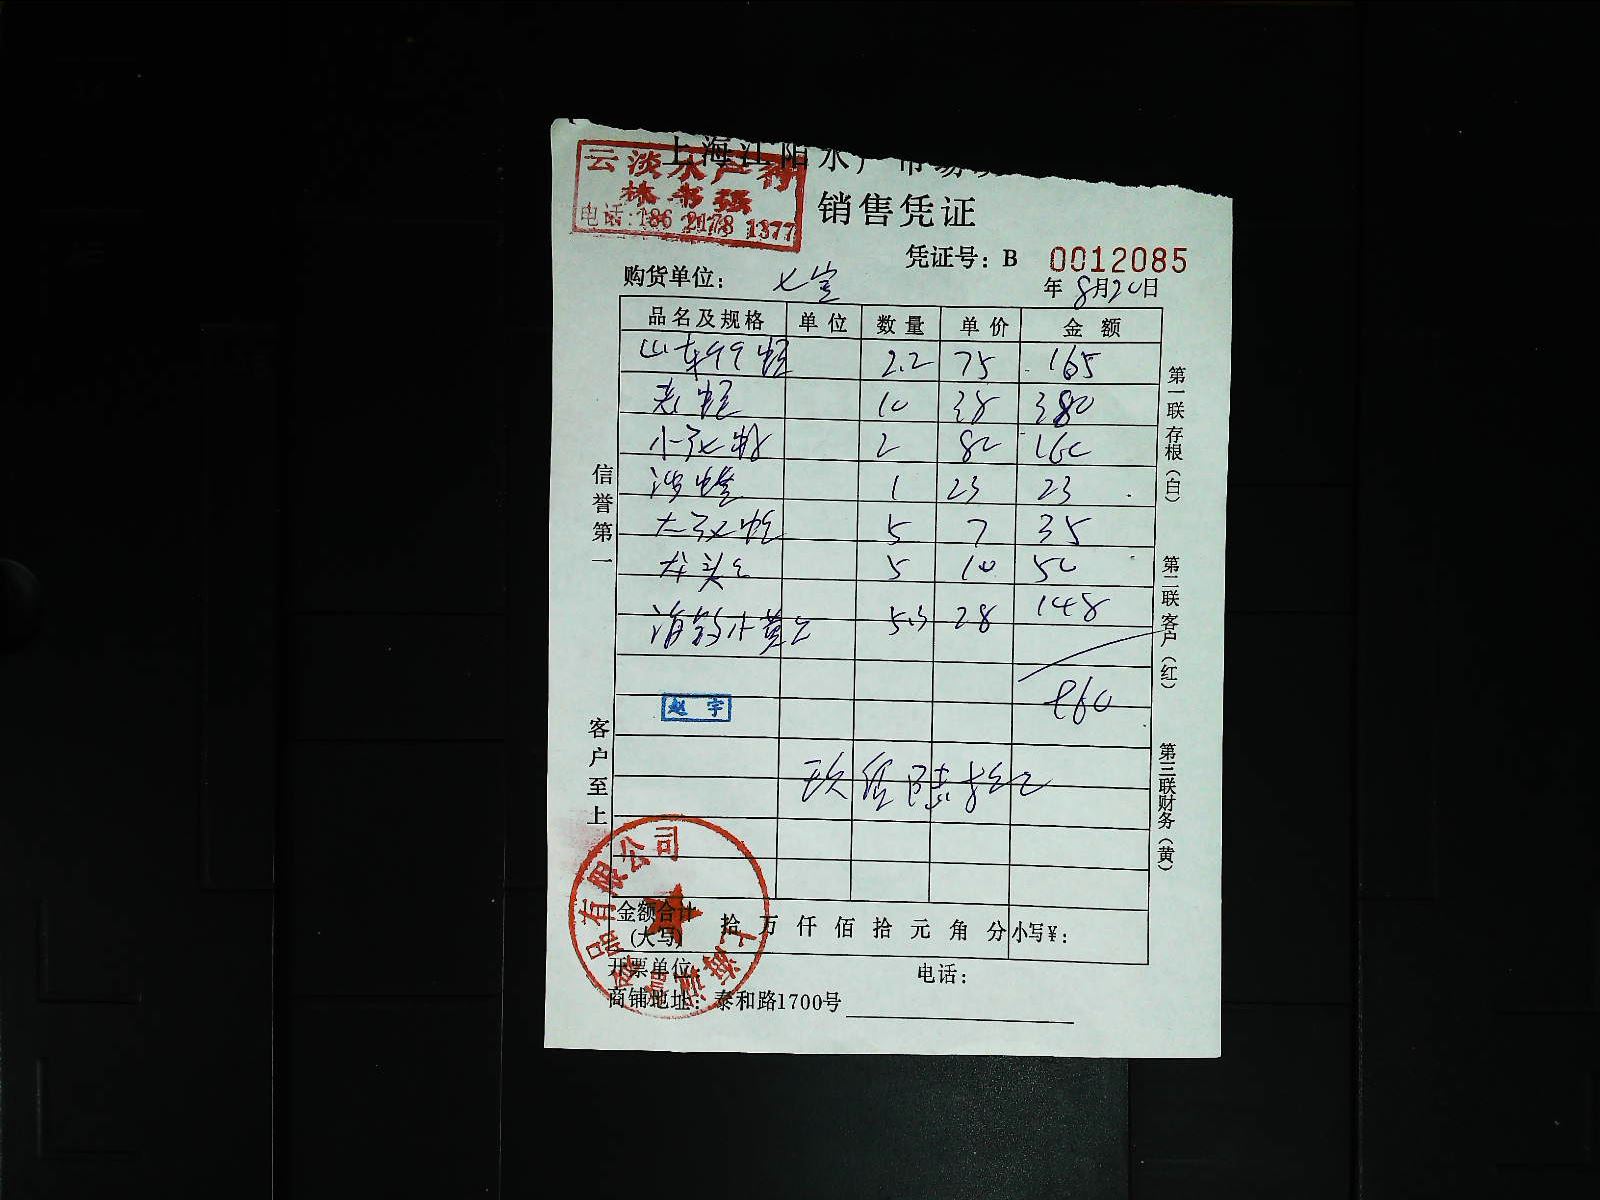 上海江阳水产市场
云淡水产行
林书强
电话:186 2178 1377
销售凭证
凭证号：B 0012085
购货单位： 七宝
年 8月20日
品名及规格 单位 数量 单价 金额
2.2 75 165
老蛏 10 38 380
2 80 160
1 23 23
5 7 35
龙头 5 10 50
5.3 28 148
960
赵宇
玖佰陆拾元
信誉第一
客户至上
第一联存根（白）
第二联客户（红）
第三联财务（黄）
金额合计(大写) 拾 万 仟 佰 拾 元 角 分 小写¥：
开票单位： 电话：
商铺地址：泰和路1700号
上海 品有限公司